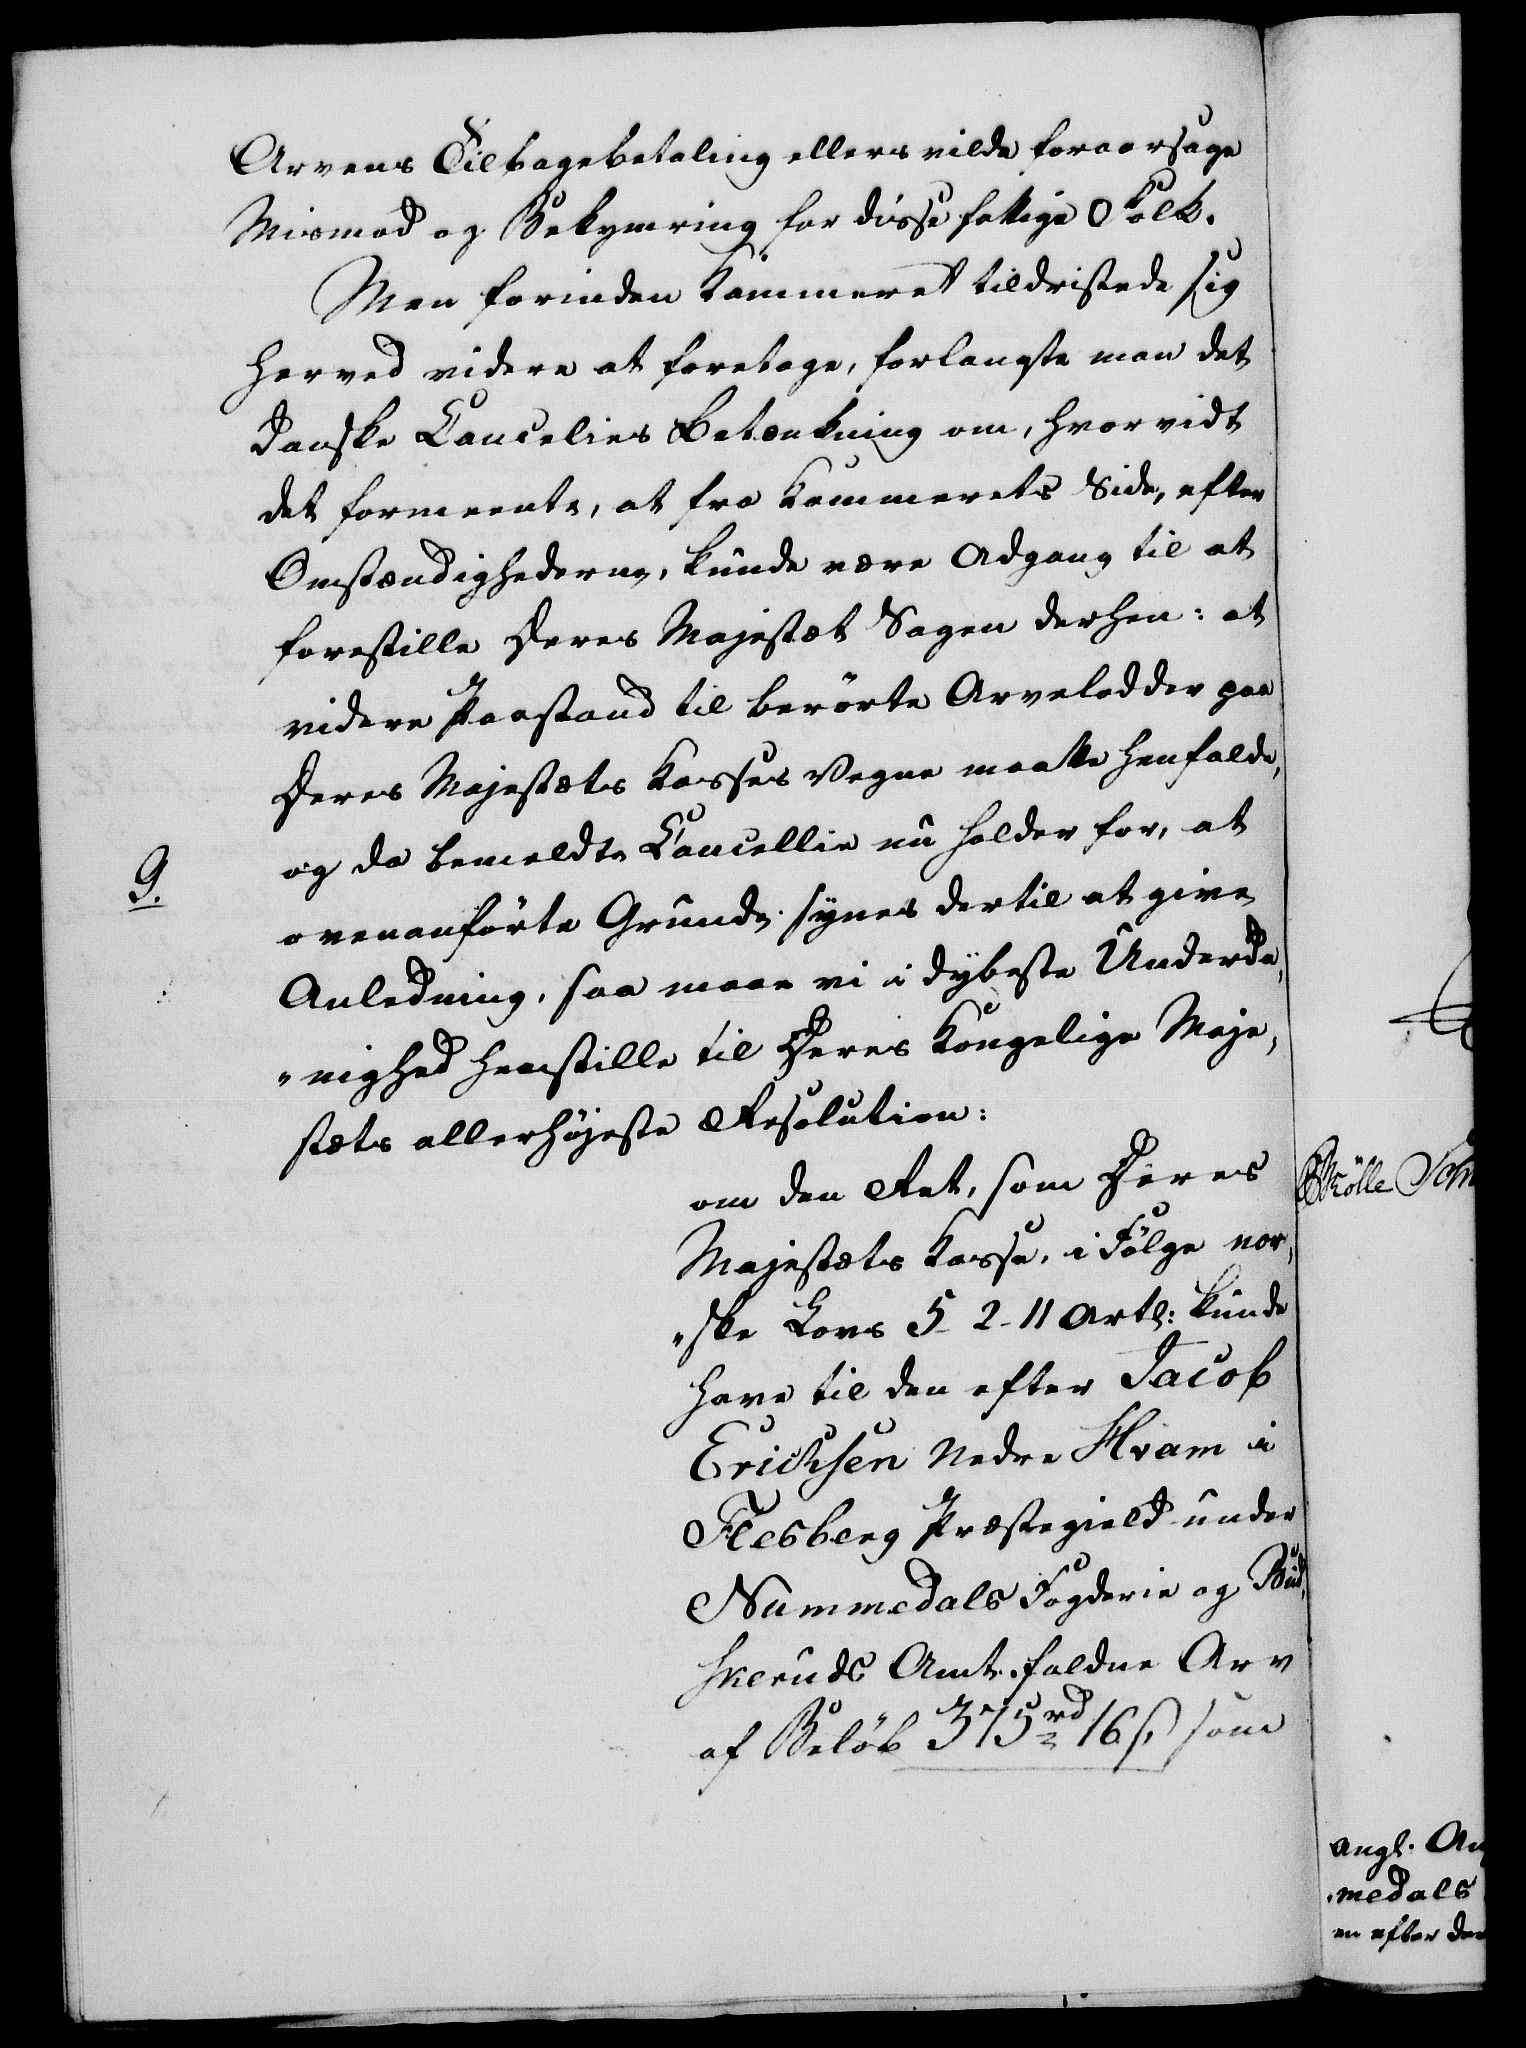 Arvens Tilbagebetaling ellers vilde foraarsage
Mismod og Bekymring for disse fattige Folk.
Men forinden Kammeret tildristede sig
herved videre at foretage, forlangte man det
danske Cancelies Betænkning om, hvorvidt
det formeente, at fra Kammerets Side, efter
Omstændighederne, kunde være Adgang til at
forestille Deres Majestæt Sagen derhen: at
videre Paastand til berørte Arvelodder paa
Deres Majestæts Kasses Vegne maatte henfalde,
og da bemeldte Cancellie nu holder for, at
9.
ovenanførte Grunde synes dertil at give
Anledning, saa maae vi i dybeste Underda,
„nighed henstille til Deres Kongelige Maje,
stæts allerhøjeste Resolution:
om den Ret, som Deres
Majestæts Kasse, i Følge nor,
„ske Lovs 5-2-11 Artl: kunde
have til den efter Jacob
Erichsen Nedre Hvam i
Flesberg Præstegield under
Nummedals Fogderie og Bud,
skeruds Amt faldne Arv
af Beløb 375 rd 16 s, som
Mölle
angl. An
„medals
en efter den